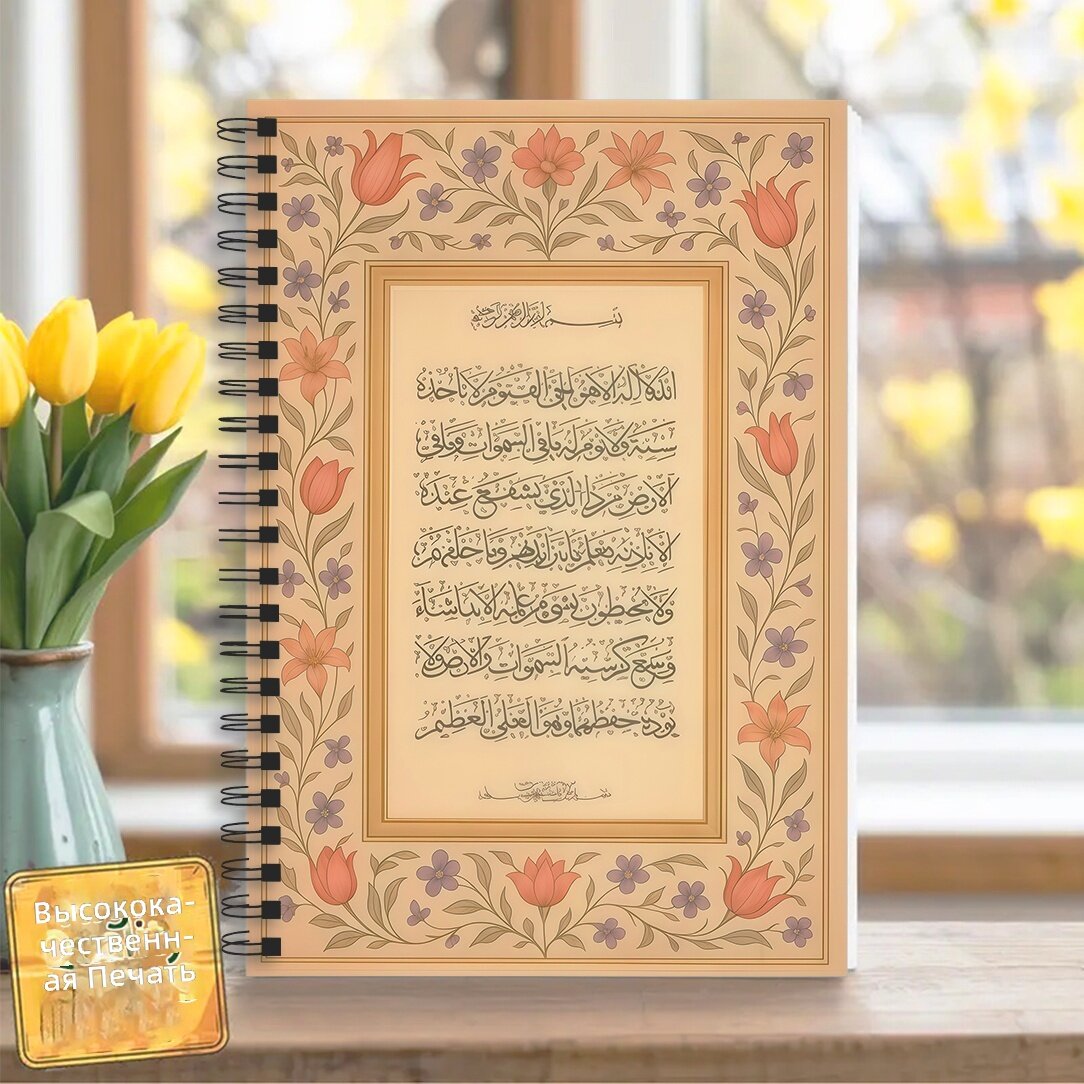 بسم الله الرحمن الرحيم
الله لا إله الا هو الحي القيوم لا تاخذه
سنة ولا نوم له ما في السموات وما في
الارض من ذا الذي يشفع عنده
الا باذنه يعلم ما بين ايديهم وما خلفهم
ولا يحيطون بشيء من علمه الا بما شاء
وسع كرسيه السموات والارض ولا
يوده حفظهما وهو العلي العظيم
Высокока-
чественн-
ая Печать